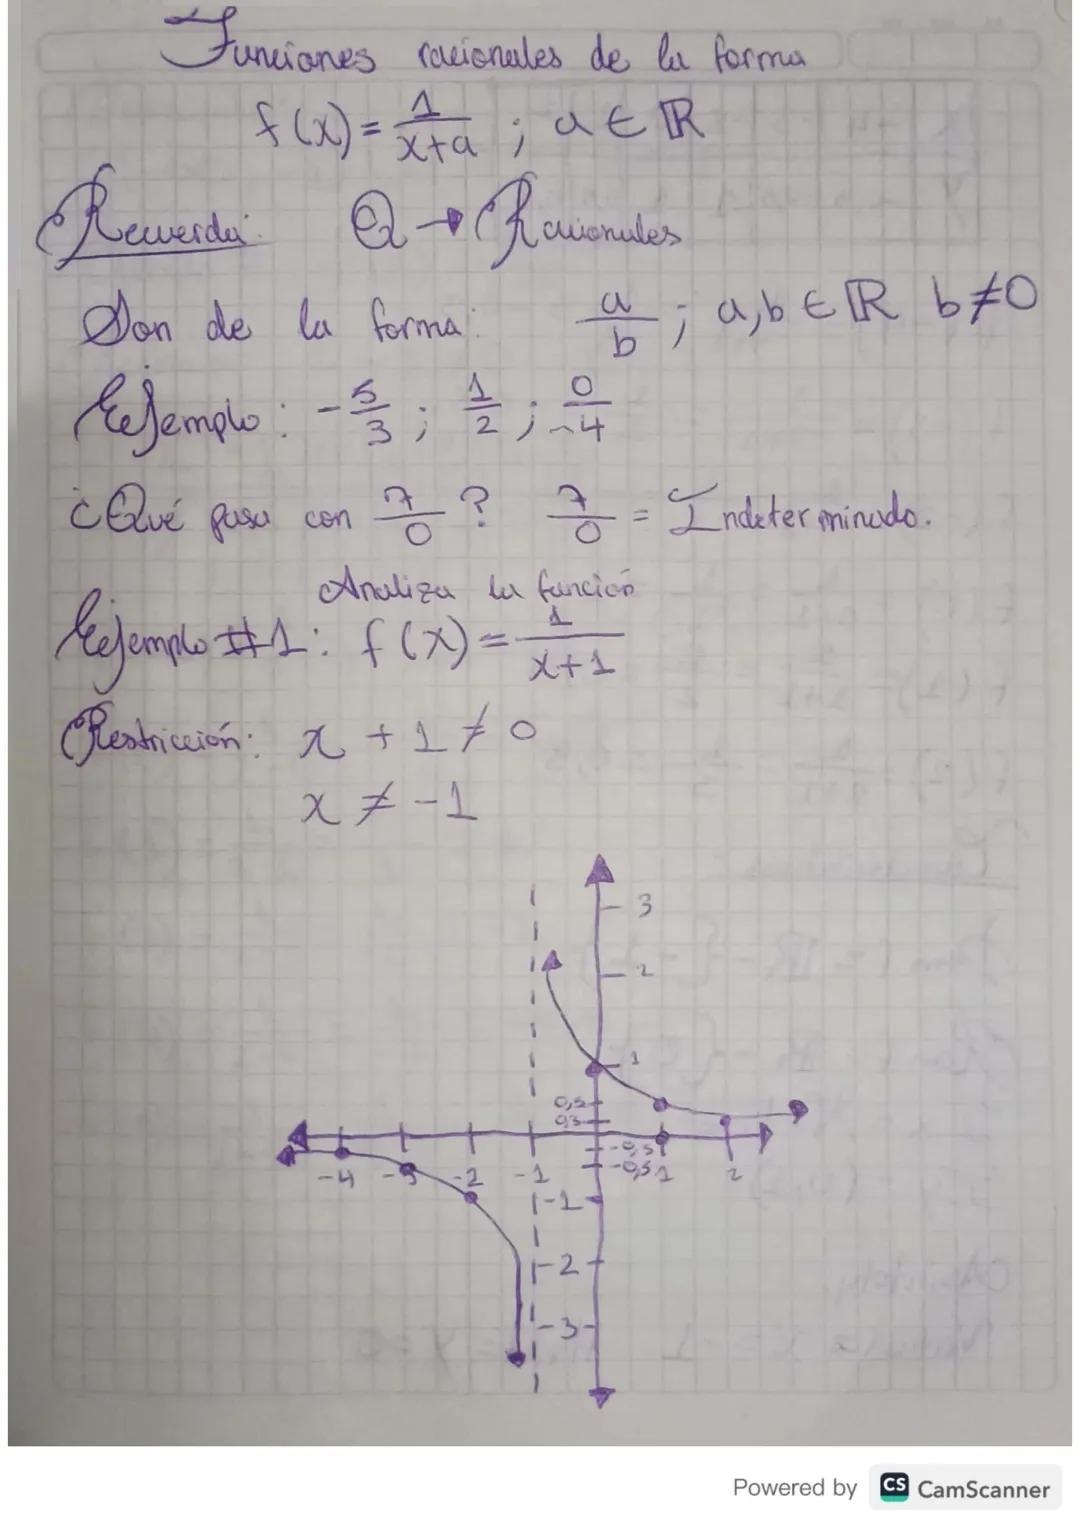 Funciones racionales de la forma
f(x) = 1/(x+a) ; a ∈ ℝ
Recuerda: Q → Racionales
Son de la forma: a/b ; a,b ∈ ℝ b≠0
Ejemplo: -5/3 ; 1/2 ; 0/-4
¿Qué pasa con 7/0 ? 7/0 = Indeterminado.
Analiza la función
Ejemplo #1: f(x) = 1/(x+1)
Restricción: x + 1 ≠ 0
x ≠ -1
3
2
1
0,5
0,3
-0,3
-0,5
-4 -3 -2 -1 1 2
-1
-2
-3
Powered by CS CamScanner